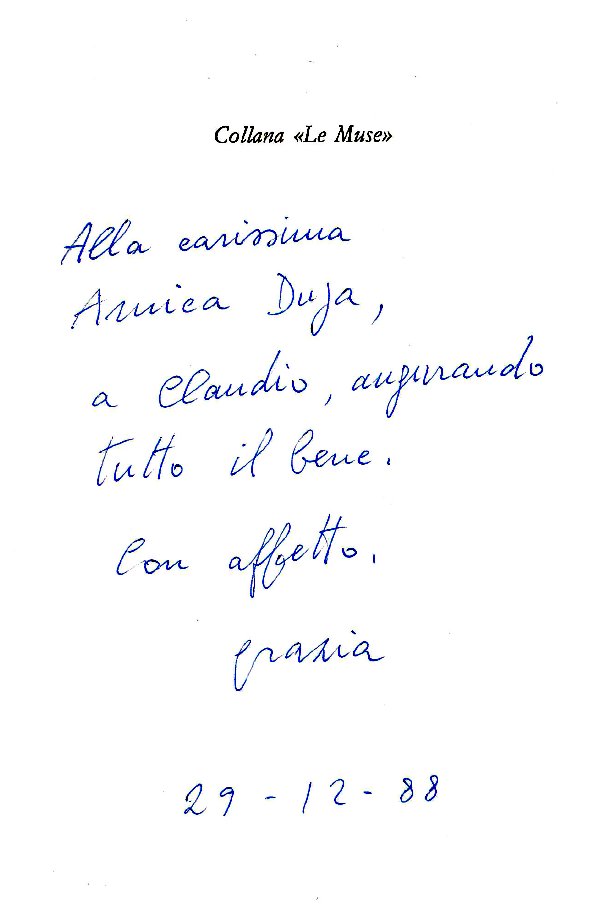 Collana «Le Muse»
Alla carissima
Amica Duja,
a Claudio, augurando
tutto il bene.
Con affetto.
grazia
29-12-88